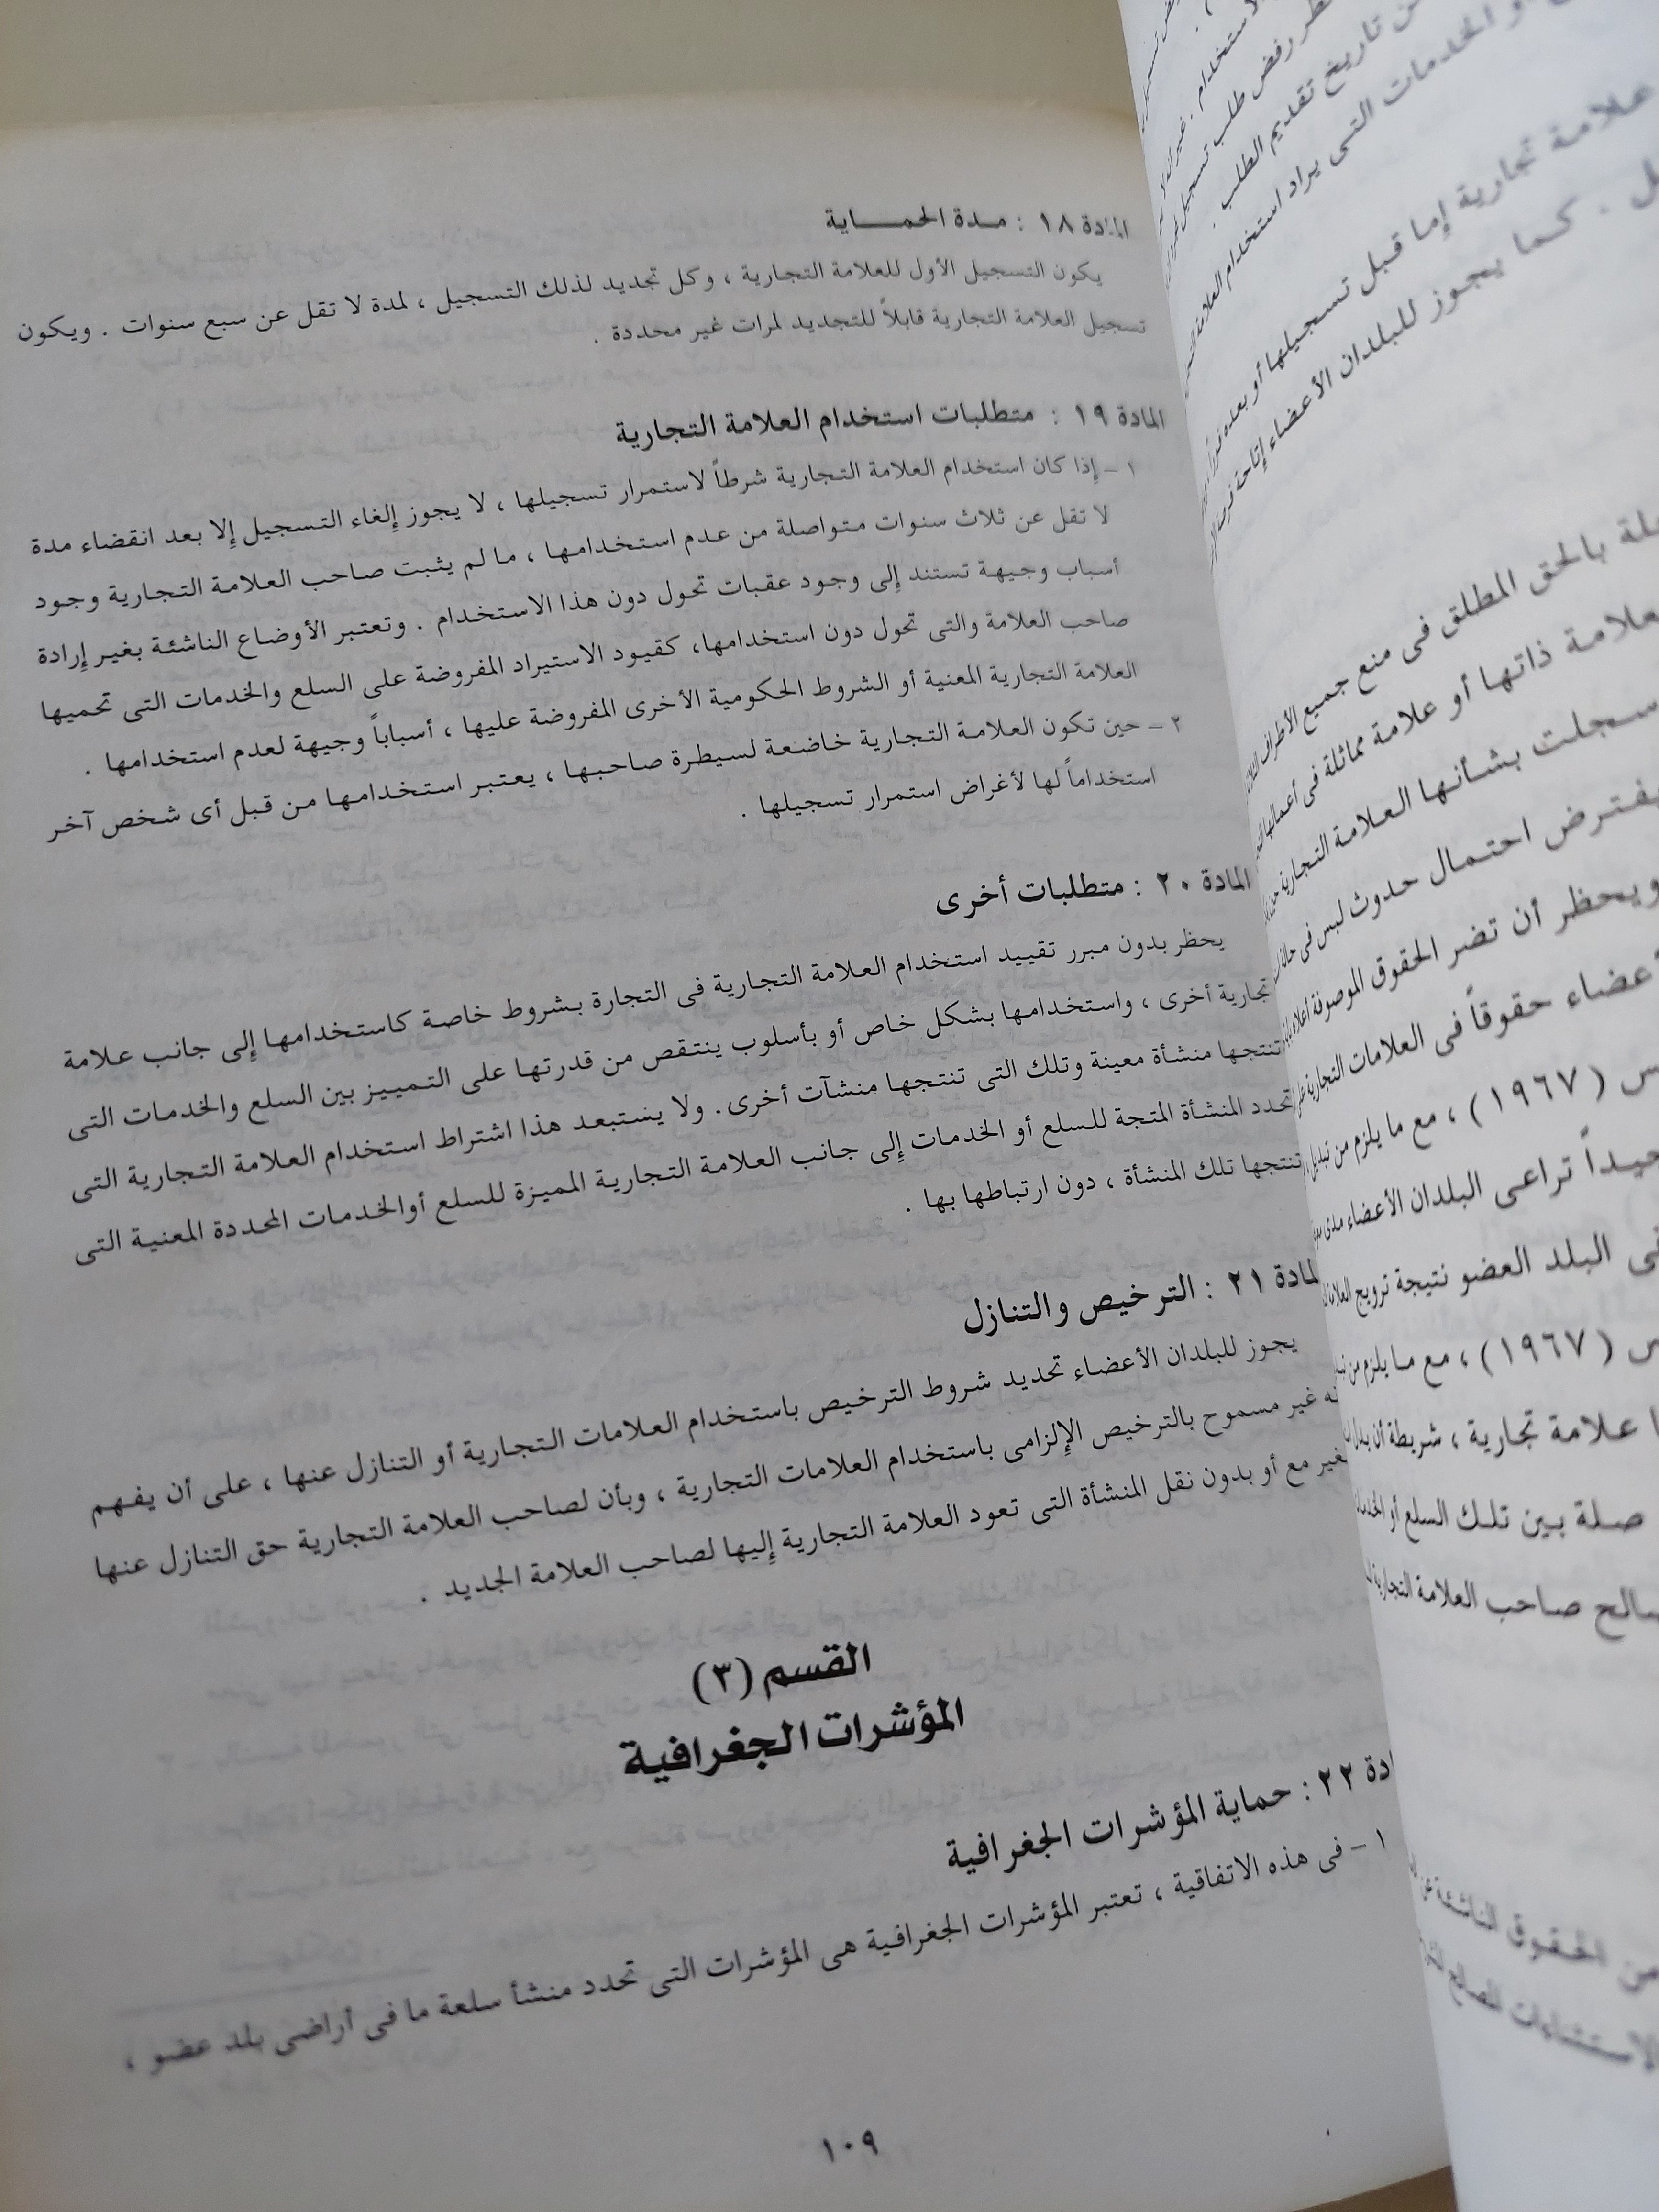 المادة ١٨ : مدة الحماية
يكون التسجيل الأول للعلامة التجارية ، وكل تجديد لذلك التسجيل ، لمدة لا تقل عن سبع سنوات . ويكون
تسجيل العلامة التجارية قابلاً للتجديد لمرات غير محددة .
المادة ١٩ : متطلبات استخدام العلامة التجارية
١ – إذا كان استخدام العلامة التجارية شرطاً لاستمرار تسجيلها ، لا يجوز إلغاء التسجيل إلا بعد انقضاء مدة
لا تقل عن ثلاث سنوات متواصلة من عدم استخدامها ، ما لم يثبت صاحب العلامة التجارية وجود
أسباب وجيهة تستند إلى وجود عقبات تحول دون هذا الاستخدام . وتعتبر الأوضاع الناشئة بغير إرادة
صاحب العلامة والتى تحول دون استخدامها، كقيود الاستيراد المفروضة على السلع والخدمات التى تحميها
العلامة التجارية المعنية أو الشروط الحكومية الأخرى المفروضة عليها ، أسباباً وجيهة لعدم استخدامها .
٢ – حين تكون العلامة التجارية خاضعة لسيطرة صاحبها ، يعتبر استخدامها من قبل أى شخص آخر
استخداماً لها لأغراض استمرار تسجيلها .
المادة ٢٠ : متطلبات أخرى
يحظر بدون مبرر تقييد استخدام العلامة التجارية فى التجارة بشروط خاصة كاستخدامها إلى جانب علامة
تجارية أخرى ، واستخدامها بشكل خاص أو بأسلوب ينتقص من قدرتها على التمييز بين السلع والخدمات التى
تنتجها منشأة معينة وتلك التى تنتجها منشآت أخرى. ولا يستبعد هذا اشتراط استخدام العلامة التجارية التى
تحدد المنشأة المتجة للسلع أو الخدمات إلى جانب العلامة التجارية المميزة للسلع أوالخدمات المحددة المعنية التى
تنتجها تلك المنشأة ، دون ارتباطها بها .
لمادة ٢١ : الترخيص والتنازل
يجوز للبلدان الأعضاء تحديد شروط الترخيص باستخدام العلامات التجارية أو التنازل عنها ، على أن يفهم
غير مسموح بالترخيص الإلزامى باستخدام العلامات التجارية ، وبأن لصاحب العلامة التجارية حق التنازل عنها
لغير مع أو بدون نقل المنشأة التى تعود العلامة التجارية إليها لصاحب العلامة الجديد .
القسم (٣)
المؤشرات الجغرافية
ادة ٢٢ : حماية المؤشرات الجغرافية
١ – فى هذه الاتفاقية ، تعتبر المؤشرات الجغرافية هى المؤشرات التى تحدد منشأ سلعة ما فى أراضى بلد عضو ،
١٠٩
رفض طلب تسجيل
من تاريخ تقديم الطلب .
أو الخدمات التى يراد استخدام العلامة
علامة تجارية إما قبل تسجيلها أو بعده فوراً
. كما يجوز للبلدان الأعضاء إتاحة فرصة
بالحق المطلق فى منع جميع الأطراف
علامة ذاتها أو علامة مماثلة فى أعمالها
سجلت بشأنها العلامة التجارية
يفترض احتمال حدوث لبس فى حالة
ويحظر أن تضر الحقوق الموصوفة أعلاه
أعضاء حقوقاً فى العلامات التجارية
( ١٩٦٧ ) ، مع ما يلزم من تبديل
تراعى البلدان الأعضاء مدى
فى البلد العضو نتيجة ترويج العلامة
( ١٩٦٧ ) ، مع ما يلزم من
علامة تجارية ، شريطة أن يدل
صلة بين تلك السلع أو
صاحب العلامة التجارية
من الحقوق الناشئة عن